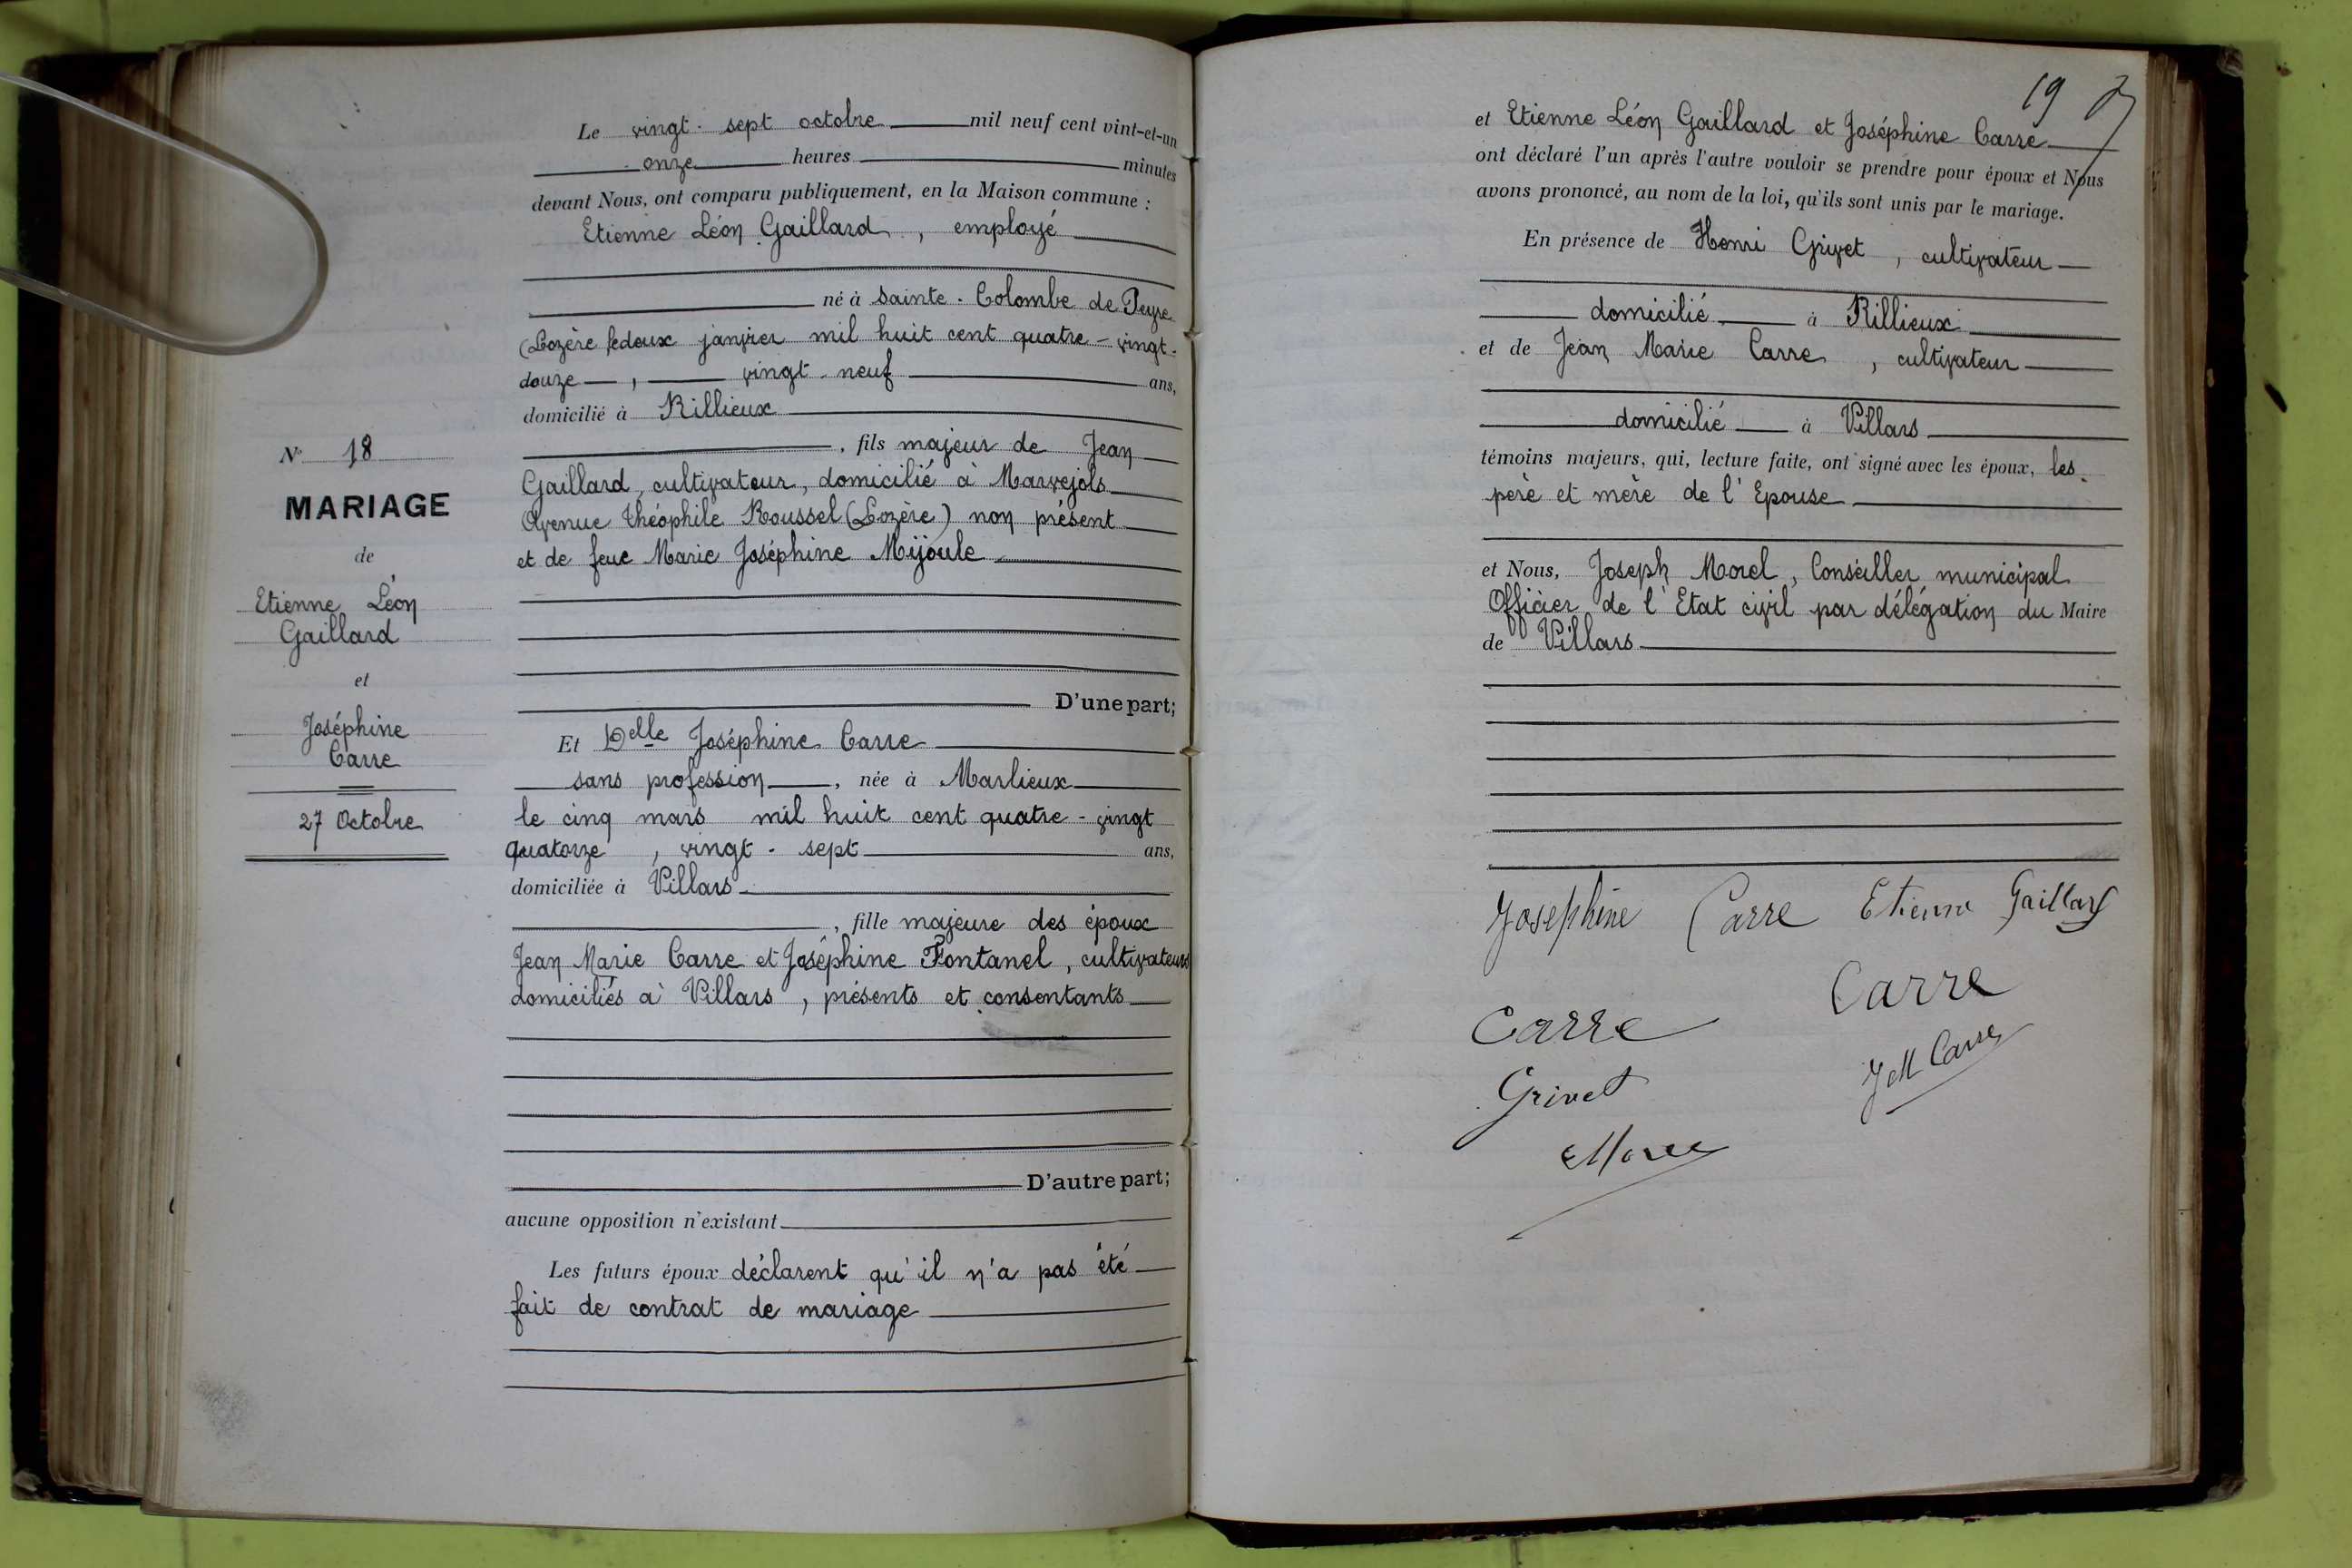 Le vingt-sept octobre mil neuf cent vint-et-un
onze heures minutes
devant Nous, ont comparu publiquement, en la Maison commune :
Etienne Léon Gaillard, employé
né à Sainte-Colombe de Peyre
(Lozère le deux janvier mil huit cent quatre-vingt-
douze, vingt-neuf ans,
domicilié à Rillieux
, fils majeur de Jean
Gaillard, cultivateur, domicilié à Marvejols
Avenue Théophile Roussel (Lozère) non présent
et de feue Marie Joséphine Mijoule
D'une part;
N° 18
MARIAGE
de
Etienne Léon
Gaillard
et
Joséphine
Carre
27 Octobre
Et Delle Joséphine Carre
sans profession, née à Marlieux
le cinq mars mil huit cent quatre-vingt
quatorze, vingt-sept ans,
domiciliée à Villars
, fille majeure des époux
Jean Marie Carre et Joséphine Fontanel, cultivateurs
domiciliés à Villars, présents et consentants
D'autre part;
aucune opposition n'existant
Les futurs époux déclarent qu'il n'a pas été
fait de contrat de mariage
19
et Etienne Léon Gaillard et Joséphine Carre
ont déclaré l'un après l'autre vouloir se prendre pour époux et Nous
avons prononcé, au nom de la loi, qu'ils sont unis par le mariage.
En présence de Henri Grivet, cultivateur
domicilié à Rillieux
et de Jean Marie Carre, cultivateur
domicilié à Villars
témoins majeurs, qui, lecture faite, ont signé avec les époux, les
père et mère de l'Epouse
et Nous, Joseph Morel, Conseiller municipal
Officier de l'Etat civil par délégation du Maire
de Villars
Joséphine Carre Etienne Gaillard
Carre Carre
Grivet JM Carre
Morel